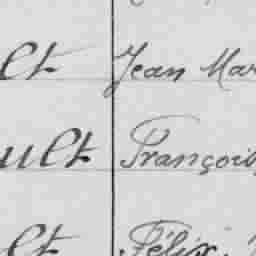 lt Jean Mar
ult François
lt Félix